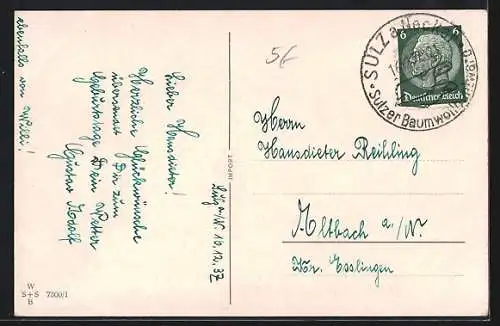 Sulz a/N. 10.12.37
Lieber Hansdieter!
Herzliche Glückwünsche
übersendet Dir zum
Geburtstage Dein Vetter
Gustav Adolf
ebenfalls von Willi!
56
SULZ a. Neckar
Sulzer Baumwoll
6 6
Deutsches Reich
Herrn
Hansdieter Reihling
Altbach a/N.
Kr. Esslingen
W
S+S 7300/1
B